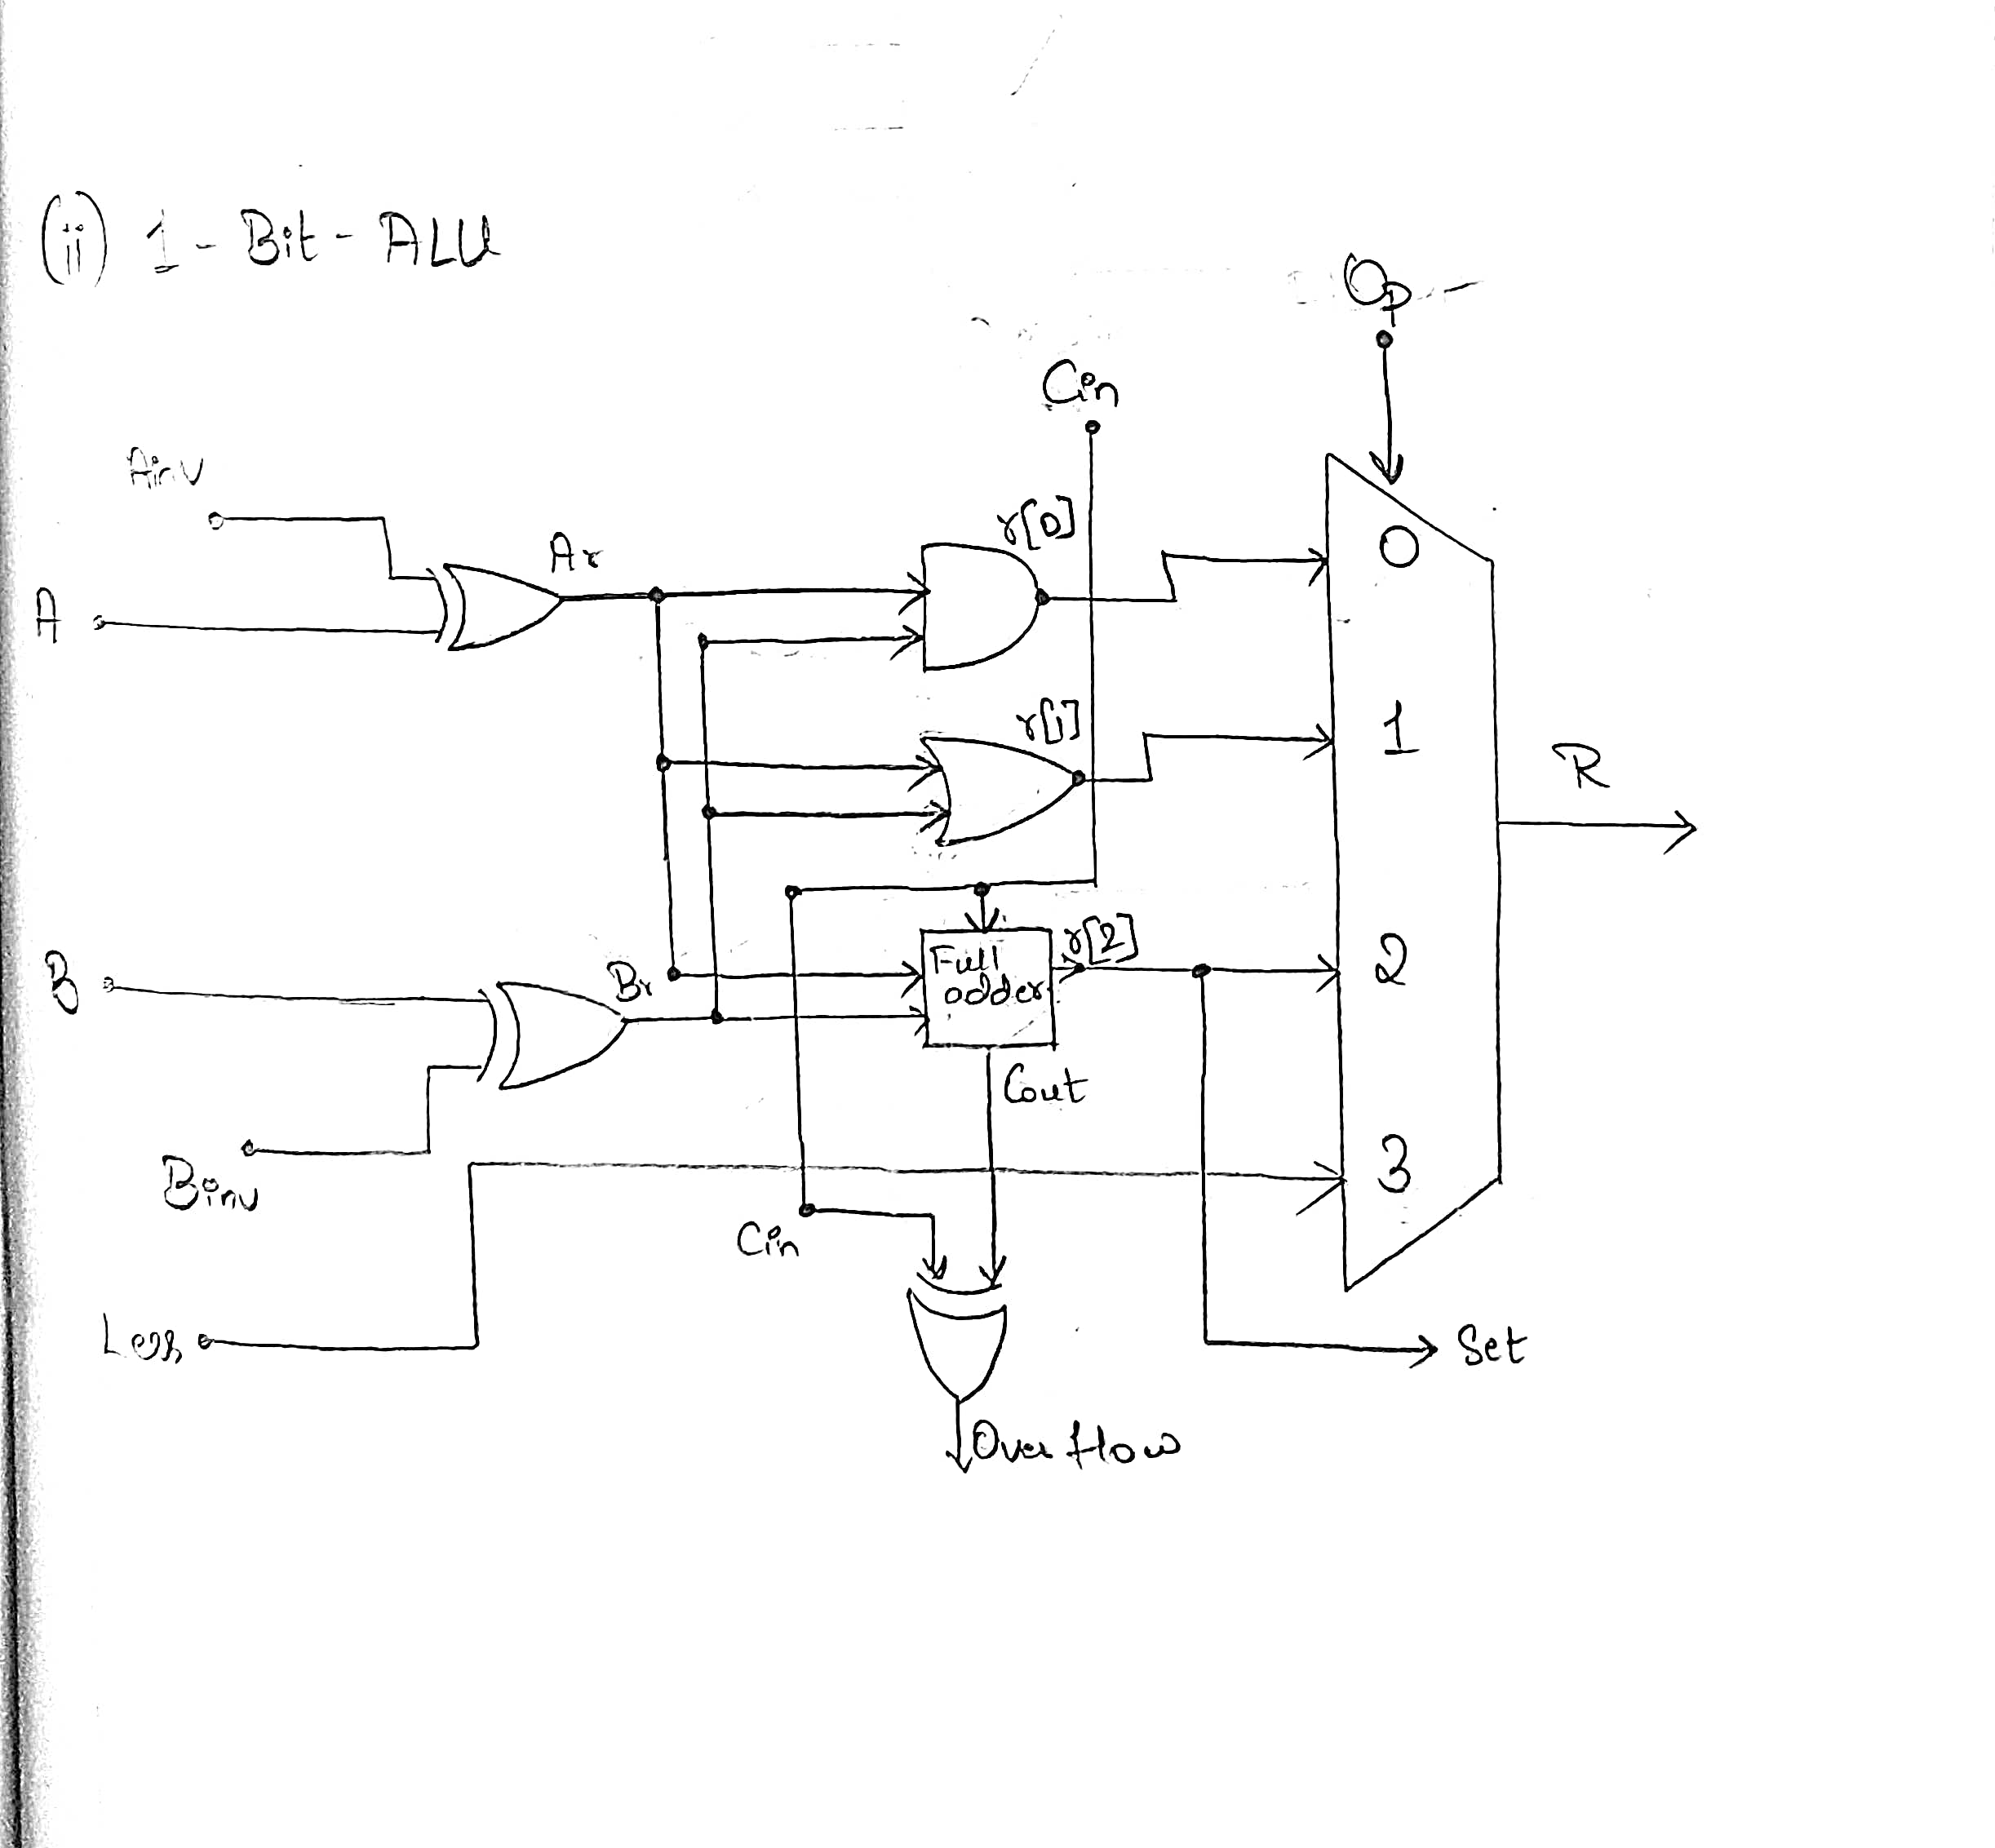 (ii) 1-Bit-ALU
Op
Cin
Ainv
r[0]
Ar
0
A
r[1]
1
R
r[2]
Full
adder
2
B
Br
Cout
3
Binv
Cin
Less
Set
Overflow